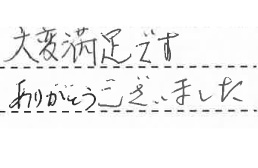 大変満足です
ありがとうございました